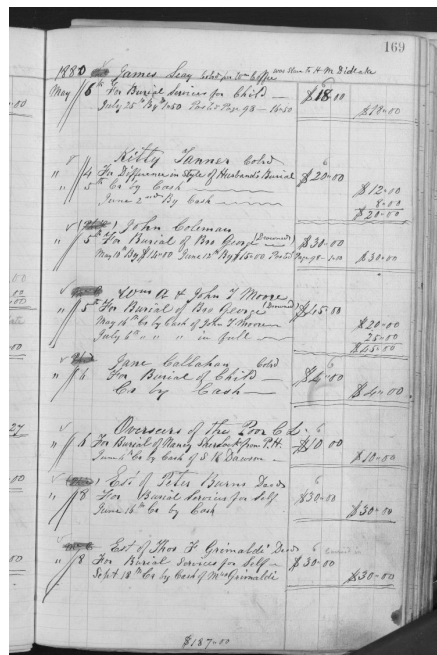 169
1880 James Seay Cold was Due to H M Didlake
May 6th For Burial Services for Child — $18.00
July 25th By $1.50 Posted Page 98 — 16.50 $18.00
Kitty Tanner Cold
" 4 For Difference in Style of Husband's Burial $20.00
" 5th Cr by Cash $12.00
June 2nd By Cash 8.00
$20.00
John Coleman
" 5th For Burial of Bro George (Drowned) $30.00
May 11 By $14.00 June 12th By $15.00 Posted Page 98 - 1.00 $30.00
Wm A & John T Moore
" 5th For Burial of Bro George (Drowned) $45.00
May 15th Cr by Cash of John T Moore $20.00
July 6th " " " in full — 25.00
$45.00
Jane Callahan Cold
" 6 For Burial of Child — $4.00
Cr by Cash — $4.00
Overseers of the Poor C L
" 6 For Burial of Nancy from P.H. $10.00
June 4th Cr by Cash of S H Dawson — $10.00
Est of Peter Burns Decd
" 8 For Burial Services for Self $30.00
June 16th Cr by Cash $30.00
Est of Thos F Grimaldi Decd
" 8 For Burial Services for Self — $30.00
Sept 18th Cr by Cash of Mrs Grimaldi $30.00
$187.00